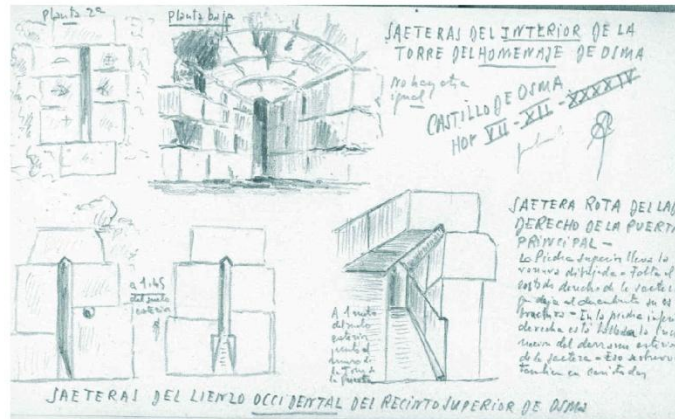 Planta 2ª
Planta baja
SAETERAS DEL INTERIOR DE LA
TORRE DEL HOMENAJE DE OSMA
No hay otra
igual
CASTILLO DE OSMA
HOY VII - XII - XXXXIV
SAETERA ROTA DEL LADO
DERECHO DE LA PUERTA
PRINCIPAL -
La Piedra superior lleva la
ranura dibujada - Falta el
costado derecho de la
deja al descubierto su es
- En la piedra inferior
derecha está
del derrame
de la saetera - Eso
también en
a 1.45
del suelo
exterior
A 1 metro
del suelo
exterior
junto al
muro de
la Torre de
la puerta
SAETERAS DEL LIENZO OCCIDENTAL DEL RECINTO SUPERIOR DE OSMA